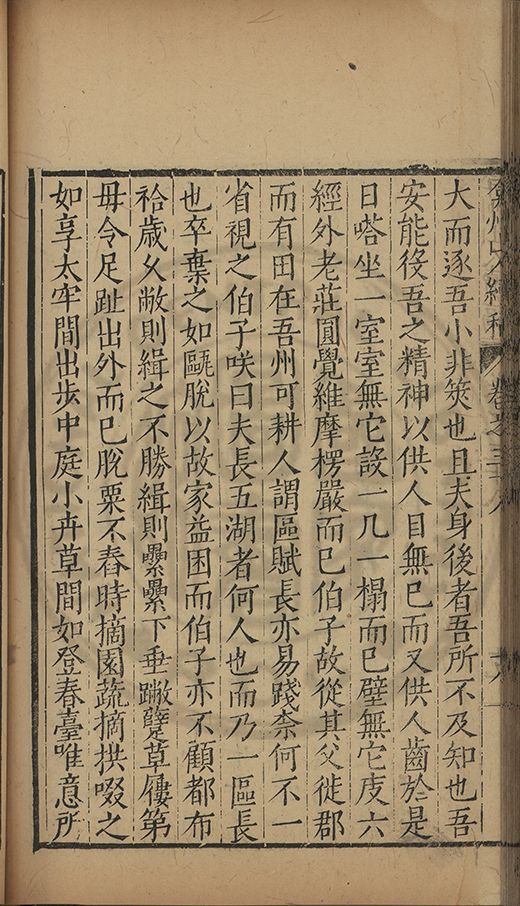 弇州山人續稿卷之三十八
大而逐吾小非筴也且夫身後者吾所不及知也吾
安能役吾之精神以供人目無已而又供人齒於是
日嗒坐一室室無它設一几一榻而已壁無它庋六
經外老莊圓覺維摩楞嚴而已伯子故從其父徙郡
而有田在吾州可耕人謂區賦長亦易踐柰何不一
省視之伯子咲曰夫長五湖者何人也而乃一區長
也卒棄之如甌脫以故家益困而伯子亦不顧都布
袷歲久敝則緝之不勝緝則纍纍下垂蹩躠草屨第
毋令足趾出外而已脫粟不舂時摘園蔬摘拱啜之
如享太牢間出步中庭小卉草間如登春臺唯意所